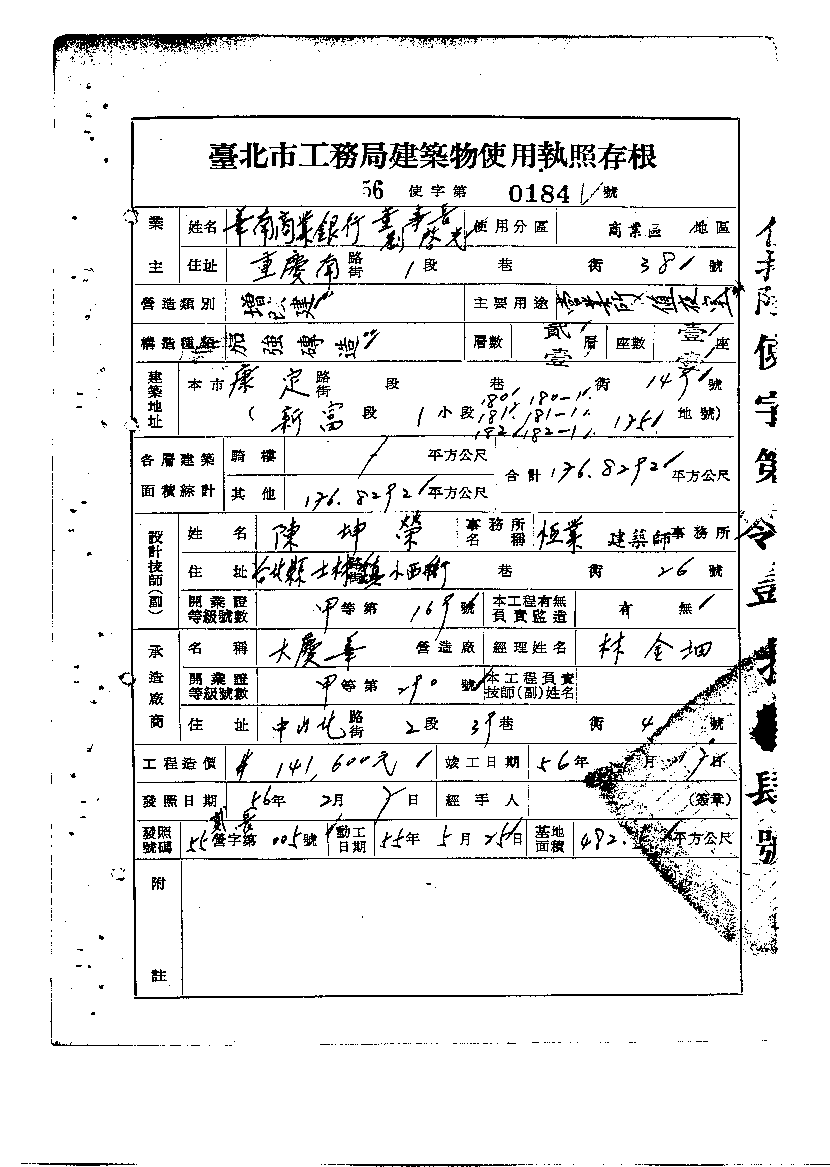 臺北市工務局建築物使用執照存根
56 使字第 0184 號
業主 姓名 華南商業銀行 董事長 劉啓光 使用分區 商業區 地區
住址 重慶南 路街 1 段 巷 街 38 號
營造類別 增建 主要用途 營業廳 值夜室
構造種類 加強磚造 層數 貳 壹 層 座數 壹 壹 座
建築地址 本市 康定 路街 段 巷 街 149 號
( 新富 段 1 小段 180 180-1 181 181-1 182 182-1 175 地號)
各層建築面積綜計 騎樓 / 平方公尺 合計 176.8292 平方公尺
其他 176.8292 平方公尺
設計技師(副) 姓名 陳坤榮 事務所名稱 恆業 建築師事務所
住址 台北縣士林鎮小西街 巷 街 26 號
開業證等級號數 甲 等第 169 號 本工程有無負責監造 有 無
承造廠商 名稱 大慶華 營造廠 經理姓名 林金
開業證等級號數 甲 等第 290 號 本工程負責技師(副)姓名
住址 中山北 路街 2 段 39 巷 街 4 號
工程造價 141,600元 竣工日期 56年 月 日
發照日期 56年 2月 7日 經手人 (簽章)
發照號碼 55 營字第 005 號 動工日期 55年 5月 25日 基地面積 482.5 平方公尺
附註
使字第 號